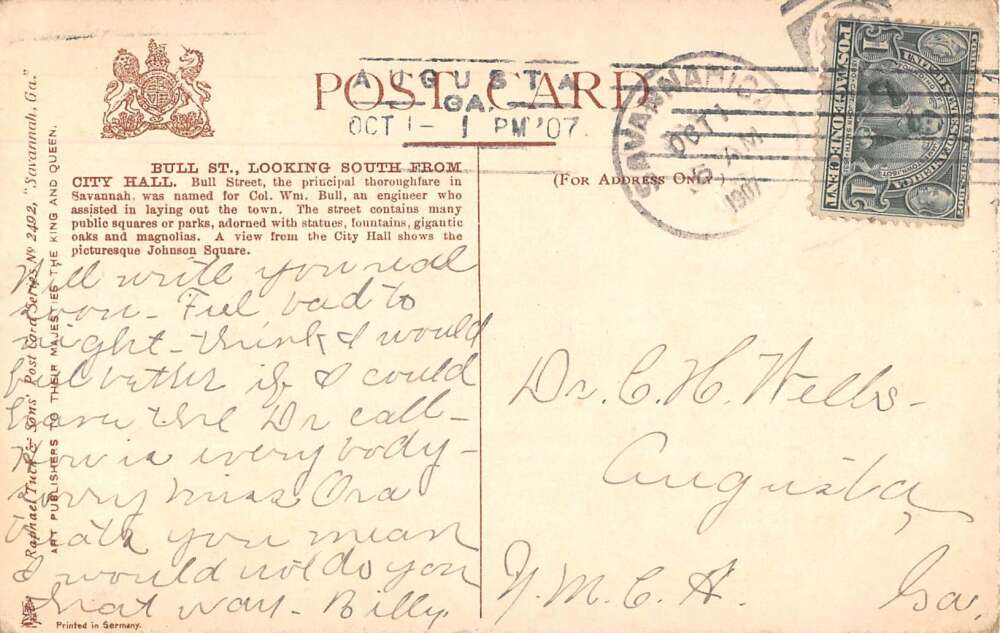 POST CARD
AUGUSTA
GA.
OCT 1 - 1 PM '07
SAVANNAH
OCT 1
5 AM
1907
POSTAGE ONE CENT
UNITED STATES OF AMERICA
1 1
BULL ST., LOOKING SOUTH FROM
CITY HALL. Bull Street, the principal thoroughfare in
Savannah, was named for Col. Wm. Bull, an engineer who
assisted in laying out the town. The street contains many
public squares or parks, adorned with statues, fountains, gigantic
oaks and magnolias. A view from the City Hall shows the
picturesque Johnson Square.
(FOR ADDRESS ONLY)
Will write you real
soon - Feel bad to
night - think I would
feel better if I could
have the Dr call -
How is every body -
Sorry Miss Ora
you mean
I would not do you
that way - Billy.
Dr. C. H. Wells -
Augusta,
Y. M. C. A. Ga,
Raphael Tuck & Sons' Post Card Series No 2492, "Savannah, Ga."
ART PUBLISHERS TO THEIR MAJESTIES THE KING AND QUEEN.
Printed in Germany.